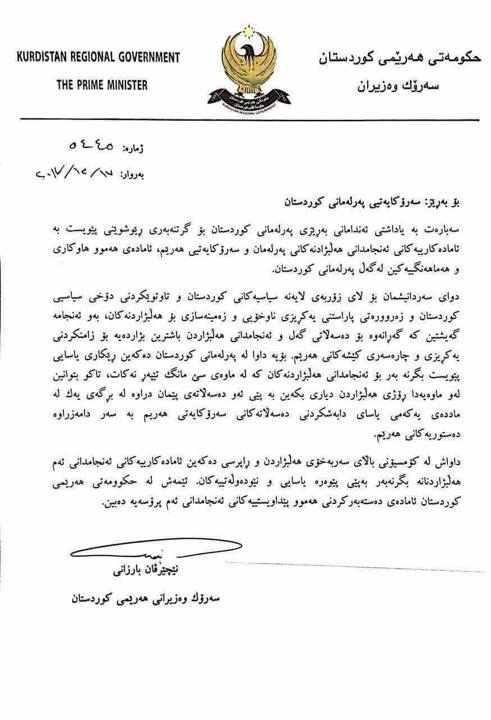 KURDISTAN REGIONAL GOVERNMENT
THE PRIME MINISTER
حکومەتی هەرێمی کوردستان
سەرۆک وەزیران
KURDISTAN REGIONAL GOVERNMENT
ژمارە: ٥٤٤٥
بەروار:
بۆ بەڕێز: سەرۆکایەتیی پەرلەمانی کوردستان
سەبارەت بە یاداشتی ئەندامانی بەڕێزی پەرلەمانی کوردستان بۆ گرتنەبەری ڕێوشوێنی پێویست بە
ئامادەکارییەکانی ئەنجامدانی هەڵبژاردنەکانی پەرلەمان و سەرۆکایەتیی هەرێم، ئامادەی هەموو هاوکاری
و هەماهەنگییەکین لەگەڵ پەرلەمانی کوردستان.
دوای سەردانیشمان بۆ لای زۆربەی لایەنە سیاسیەکانی کوردستان و تاوتوێکردنی دۆخی سیاسیی
کوردستان و زەروورەتی پاراستنی یەکڕیزی ناوخۆیی و زەمینەسازی بۆ هەڵبژاردنەکان، بەو ئەنجامە
گەیشتین کە گەڕانەوە بۆ دەسەڵاتی گەل و ئەنجامدانی هەڵبژاردن باشترین بژاردەیە بۆ زامنکردنی
یەکڕیزی و چارەسەری کێشەکانی هەرێم. بۆیە داوا لە پەرلەمانی کوردستان دەکەین ڕێکاری یاسایی
پێویست بگرنە بەر بۆ ئەنجامدانی هەڵبژاردنەکان کە لە ماوەی سێ مانگ تێپەڕ نەکات، تاکو بتوانین
لەو ماوەیەدا ڕۆژی هەڵبژاردن دیاری بکەین بە پێی ئەو دەسەڵاتەی پێمان دراوە لە بڕگەی یەک لە
ماددەی یەکەمی یاسای دابەشکردنی دەسەڵاتەکانی سەرۆکایەتی هەرێم بە سەر دامەزراوە
دەستوریەکانی هەرێم.
داواش لە کۆمسیۆنی باڵای سەربەخۆی هەڵبژاردن و ڕاپرسی دەکەین ئامادەکارییەکانی ئەنجامدانی ئەم
هەڵبژاردنانە بگرنەبەر بەپێی پێوەرە یاسایی و نێودەوڵەتییەکان. ئێمەش لە حکوومەتی هەرێمی
کوردستان ئامادەی دەستەبەرکردنی هەموو پێداویستییەکانی ئەنجامدانی ئەم پرۆسەیە دەبین.
نێچیرڤان بارزانی
سەرۆک وەزیرانی هەرێمی کوردستان